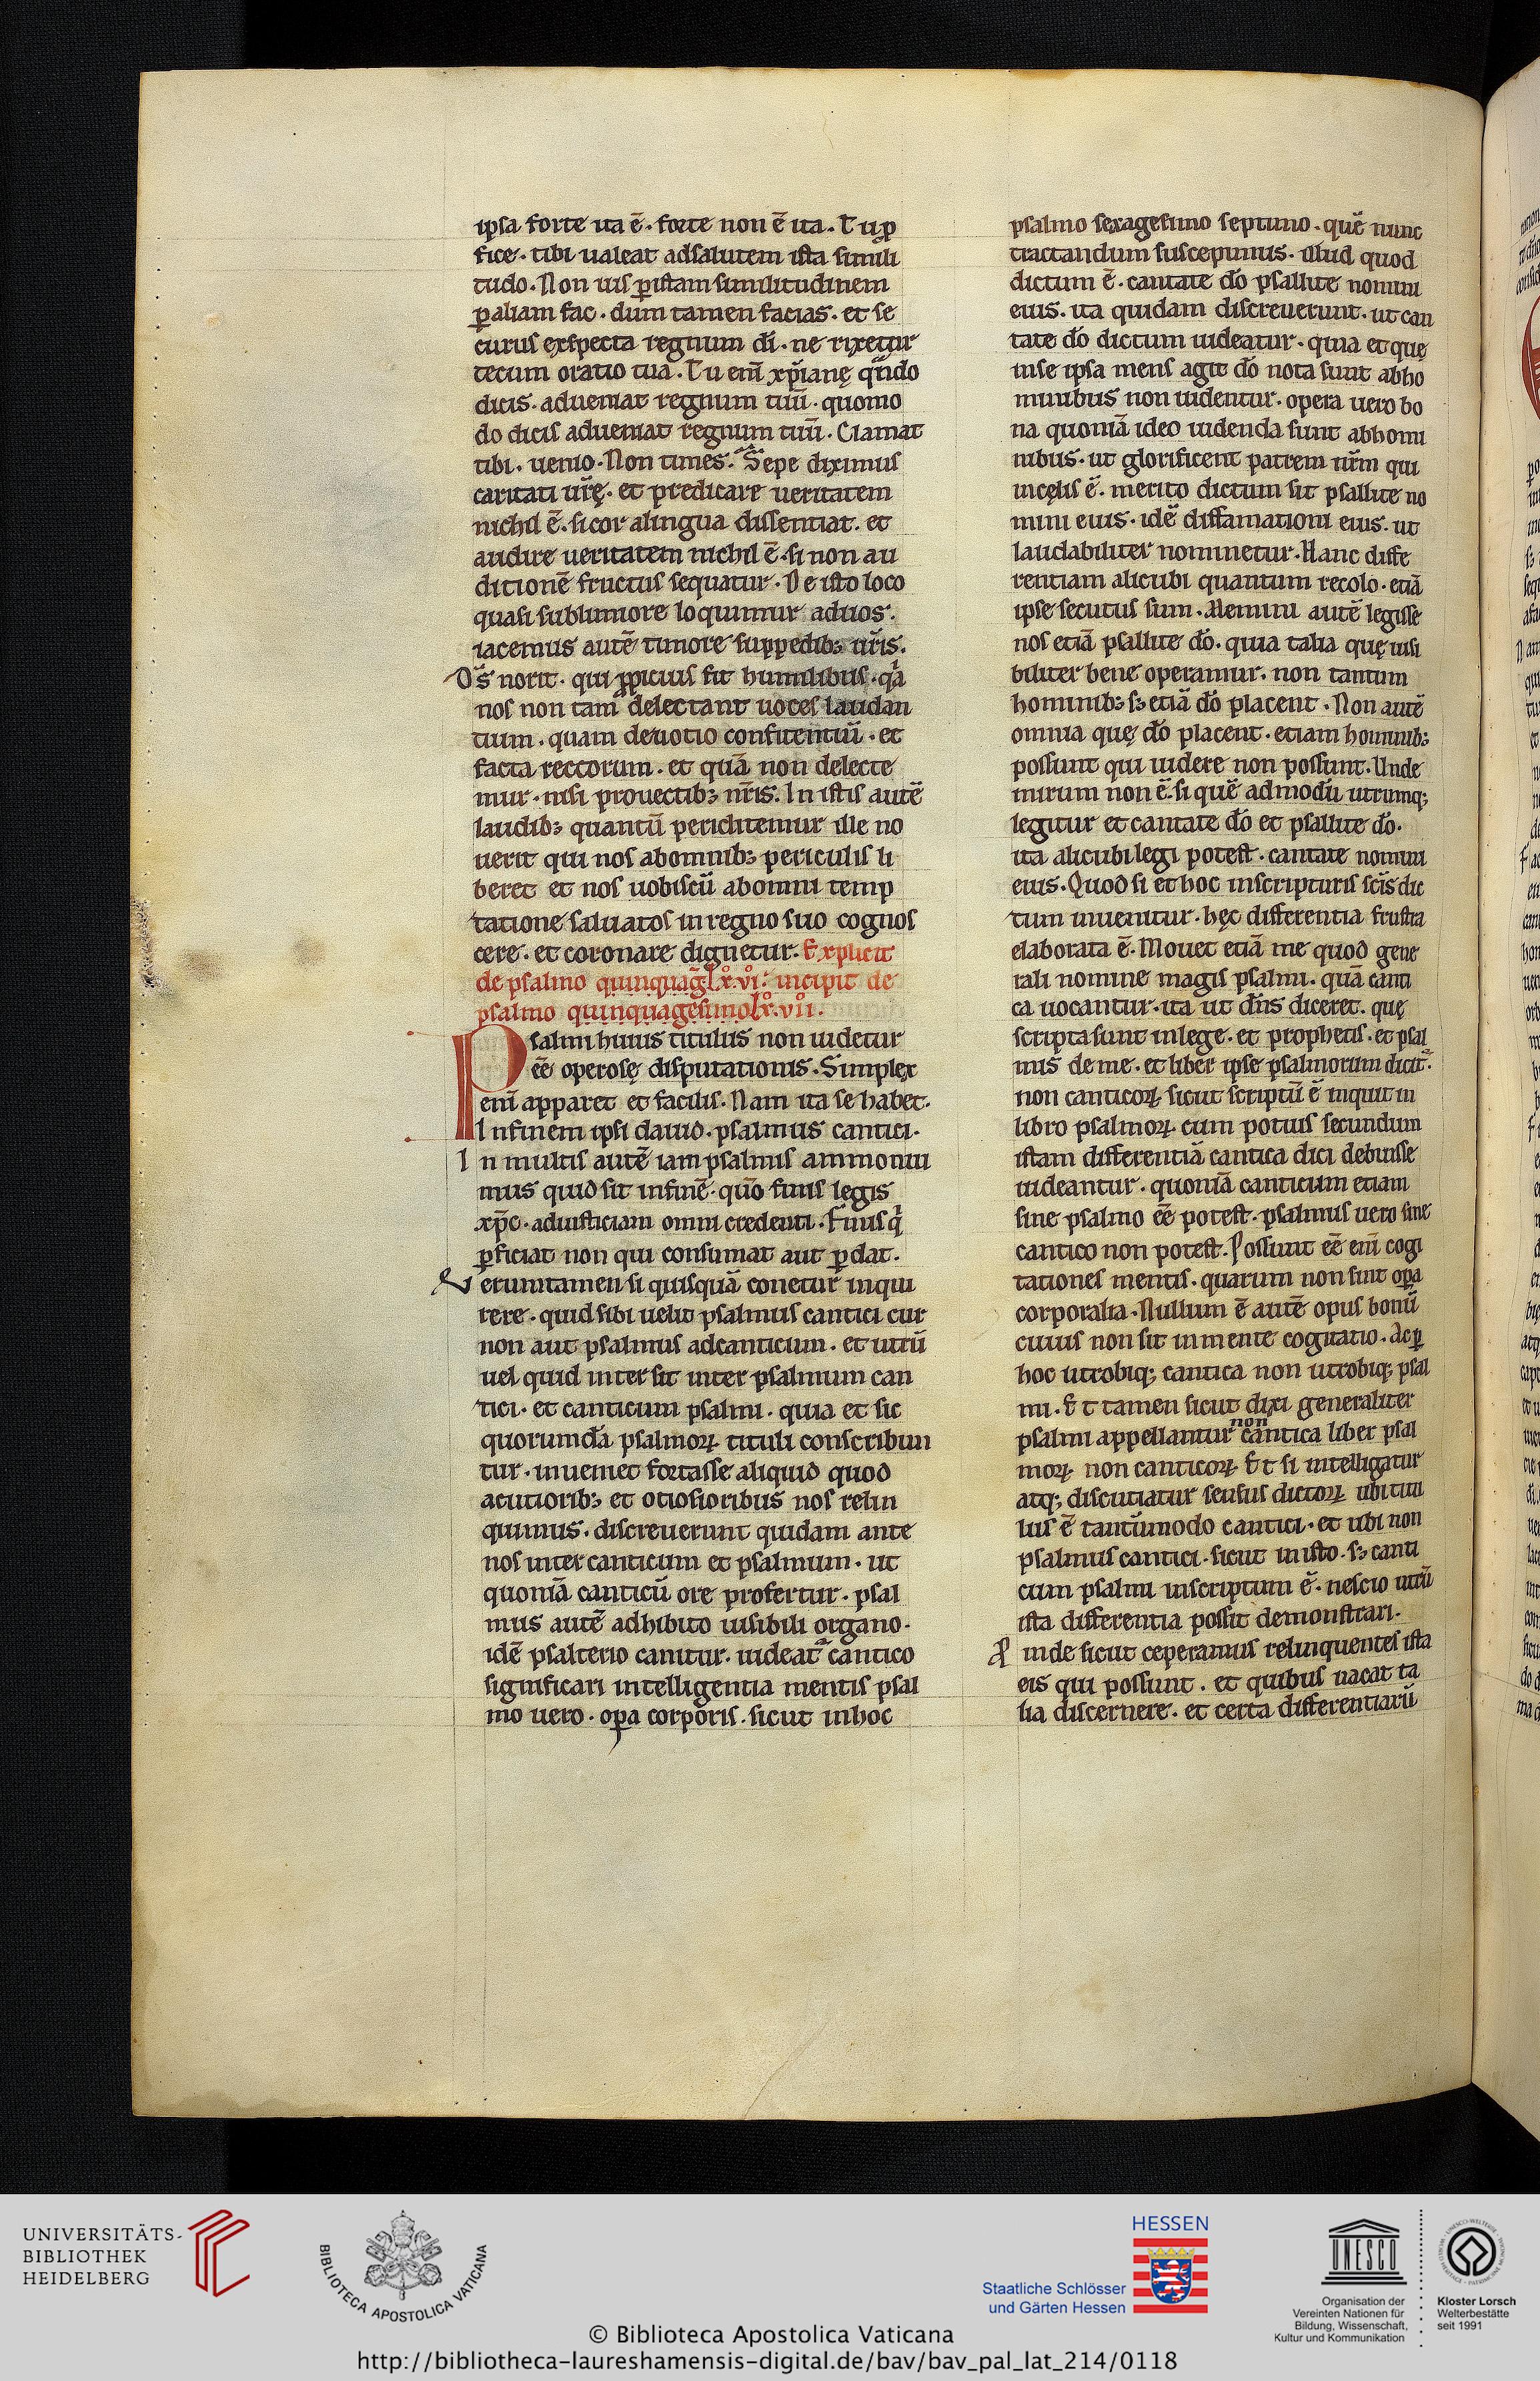 ipsa forte ita ē. forte non ē ita. Tu ꝓ
fice. tibi ualeat adsalutem ista simili
tudo. Non uis ꝑistam similitudinem
ꝑaliam fac. dum tamen facias. et se
curus exspecta regnum dī. ne rixetur
tecum oratio tua. Tu enī xp̄ianę qn̄do
dicis. adueniat regnum tuū. quomo
do dicis adueniat regnum tuū. Clamat
tibi. uenio. Non times. Sepe diximus
caritati ur̄ę. et predicare ueritatem
nichil ē. si cor alingua dissentiat. et
audire ueritatem nichil ē. si non au
ditionē fructus sequatur. De isto loco
quasi sublimiore loquimur aduos.
iacemus autē timore suppedibꝫ ur̄is.
Ds̄ norit. qui ꝓpicius fit humilibus. qͣa
nos non tam delectant uoces laudan
tium. quam deuotio confitentiū. et
facta rectorum. et quā non delecte
mur. nisi prouectibꝫ nr̄is. In istis autē
laudibꝫ quantū periclitemur ille no
uerit qui nos abomnibꝫ periculis li
beret et nos uobiscū abomni temp
tatione saluatos in regno suo cognos
cere. et coronare dignetur. Explicit
de psalmo quinquaḡ Lx̊.vi̊. incipit de
psalmo quinquagesimo lx̊.vii̊.
Psalmi huius titulus non uidetur
eē operosę disputationis. Simplex
enī apparet et facilis. Nam ita se habet.
Infinem ipsi dauid. psalmus cantici.
In multis autē iam psalmis ammonui
mus quid sit infinē. quō finis legis
xp̄c. adiusticiam omni credenti. Finis q̇
ꝑficiat non qui consumat aut ꝑdat.
Verumtamen si quisquā conetur inqui
rere. quid sibi uelit psalmus cantici cur
non aut psalmus adcanticum. et utrū
uel quid inter sit inter psalmum can
tici. et canticum psalmi. quia et sic
quorumdā psalmoꝝ tituli conscribun
tur. inueniet fortasse aliquid quod
acutioribꝫ et otiosioribus nos relin
quimus. discreuerunt quidam ante
nos inter canticum et psalmum. ut
quoniā canticū ore profertur. psal
mus autē adhibito uisibili organo.
idē psalterio canitur. uideat᷑ cantico
significari intelligentia mentis psal
mo uero. opa corporis. sicut inhoc
psalmo sexagesimo septimo. quē nunc
tractandum suscepimus. illud quod
dictum ē. cantate dō psallite nomini
eius. ita quidam discreuerunt. ut can
tate dō dictum uideatur. quia et quę
inse ipsa mens agit dō nota sunt abho
minibus non uidentur. opera uero bo
na quoniā ideo uidenda sunt abhomi
nibus. ut glorificent patrem ur̄m qui
incęlis ē. merito dictum sit psallite no
mini eius. idē diffamationi eius. ut
laudabiliter nominetur. Hanc diffe
rentiam alicubi quantum recolo. etiā
ipse secutus sum. Memini autē legisse
nos etiā psallite dō. quia talia quę uisi
biliter bene operamur. non tantum
hominibꝫ sꝫ etiā dō placent. Non autē
omnia quę dō placent. etiam hominibꝫ
possunt qui uidere non possunt. Unde
mirum non ē. si quē admodū utrumqꝫ
legitur et cantate dō et psallite dō.
ita alicubi legi potest. cantate nomini
eius. Quod si et hoc inscripturis sc̄is dic
tum inuenitur. hęc differentia frustra
elaborata ē. Mouet etiā me quod gene
rali nomine magis psalmi. quā canti
ca uocantur. ita ut dn̄s diceret. quę
scripta sunt inlege. et prophetis. et psal
mis de me. et liber ipse psalmorum dicit᷑.
non canticoꝝ sicut scriptū ē inquit in
libro psalmoꝝ cum potius secundum
istam differentiā cantica dici debuisse
uideantur. quoniā canticum etiam
sine psalmo eē potest. psalmus uero sine
cantico non potest. Possunt eē enī cogi
tationes mentis. quarum non sint opa
corporalia. Nullum ē autē opus bonū
cuius non sit inmente cogitatio. Ac ꝑ
hoc utrobiqꝫ cantica non utrobiqꝫ psal
mi. Et tamen sicut dixi generaliter
psalmi appellantur non cantica liber psal
moꝝ non canticoꝝ Et si intelligatur
atqꝫ discutiatur sensus dictoꝝ ubi titu
lus ē tantūmodo cantici. et ubi non
psalmus cantici. sicut in isto. sꝫ canti
cum psalmi inscriptum ē. nescio utrū
ista differentia possit demonstrari.
Proinde sicut ceperamus relinquentes ista
eis qui possunt. et quibus uacat ta
lia discernere. et certa differentiarū
UNIVERSITÄTS-
BIBLIOTHEK
HEIDELBERG
BIBLIOTECA APOSTOLICA VATICANA
HESSEN
Staatliche Schlösser
und Gärten Hessen
UNESCO
Organisation der
Vereinten Nationen für
Bildung, Wissenschaft,
Kultur und Kommunikation
Kloster Lorsch
Welterbestätte
seit 1991
© Biblioteca Apostolica Vaticana
http://bibliotheca-laureshamensis-digital.de/bav/bav_pal_lat_214/0118